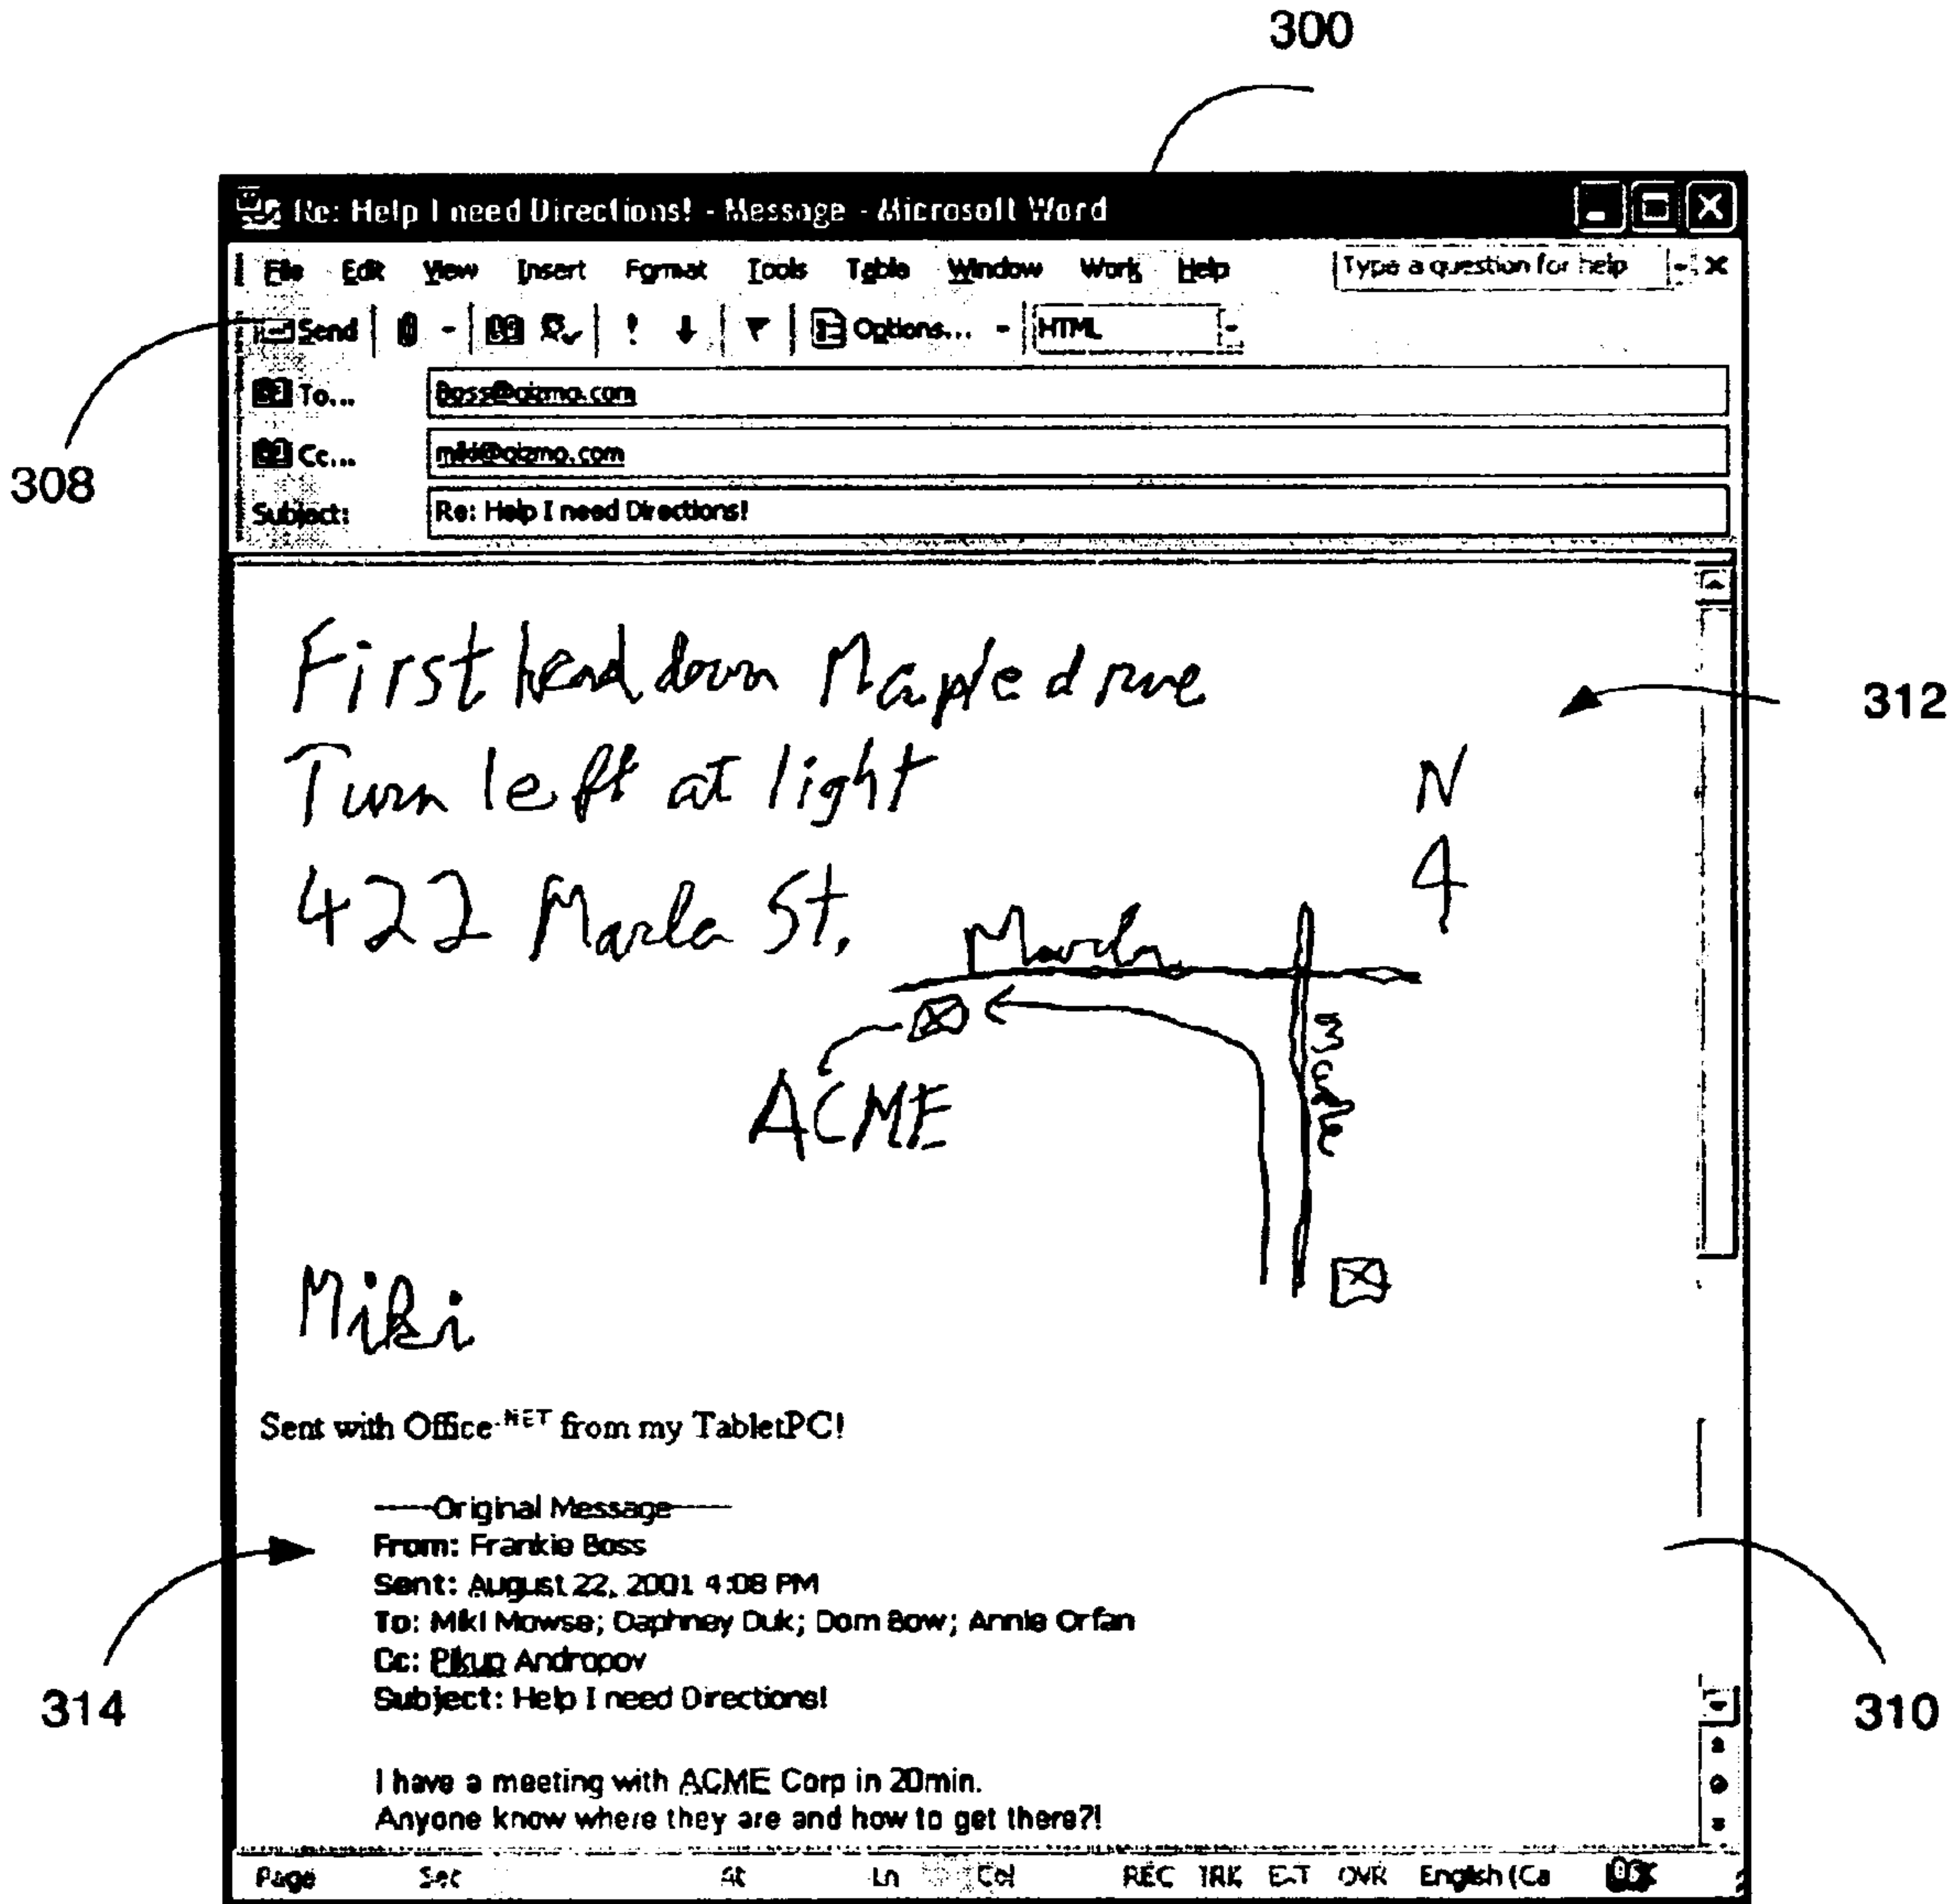 300
Re: Help I need Directions! - Message - Microsoft Word
File Edit View Insert Format Tools Table Window Work Help Type a question for help
Send ! Options... HTML
308
To... Boss@gizmo.com
Cc... miki@gizmo.com
Subject: Re: Help I need Directions!
First head down Maple drive
312
Turn left at light
N
422 Marla St.
Marla
Maple
ACME
Miki
Sent with Office.NET from my TabletPC!
-----Original Message-----
From: Frankie Boss
Sent: August 22, 2001 4:08 PM
To: Miki Mowse; Daphney Duk; Dom Bow; Annie Orfan
Cc: Pikup Andropov
Subject: Help I need Directions!
314
310
I have a meeting with ACME Corp in 20min.
Anyone know where they are and how to get there?!
Page Sec At Ln Col REC TRK EXT OVR English (Ca